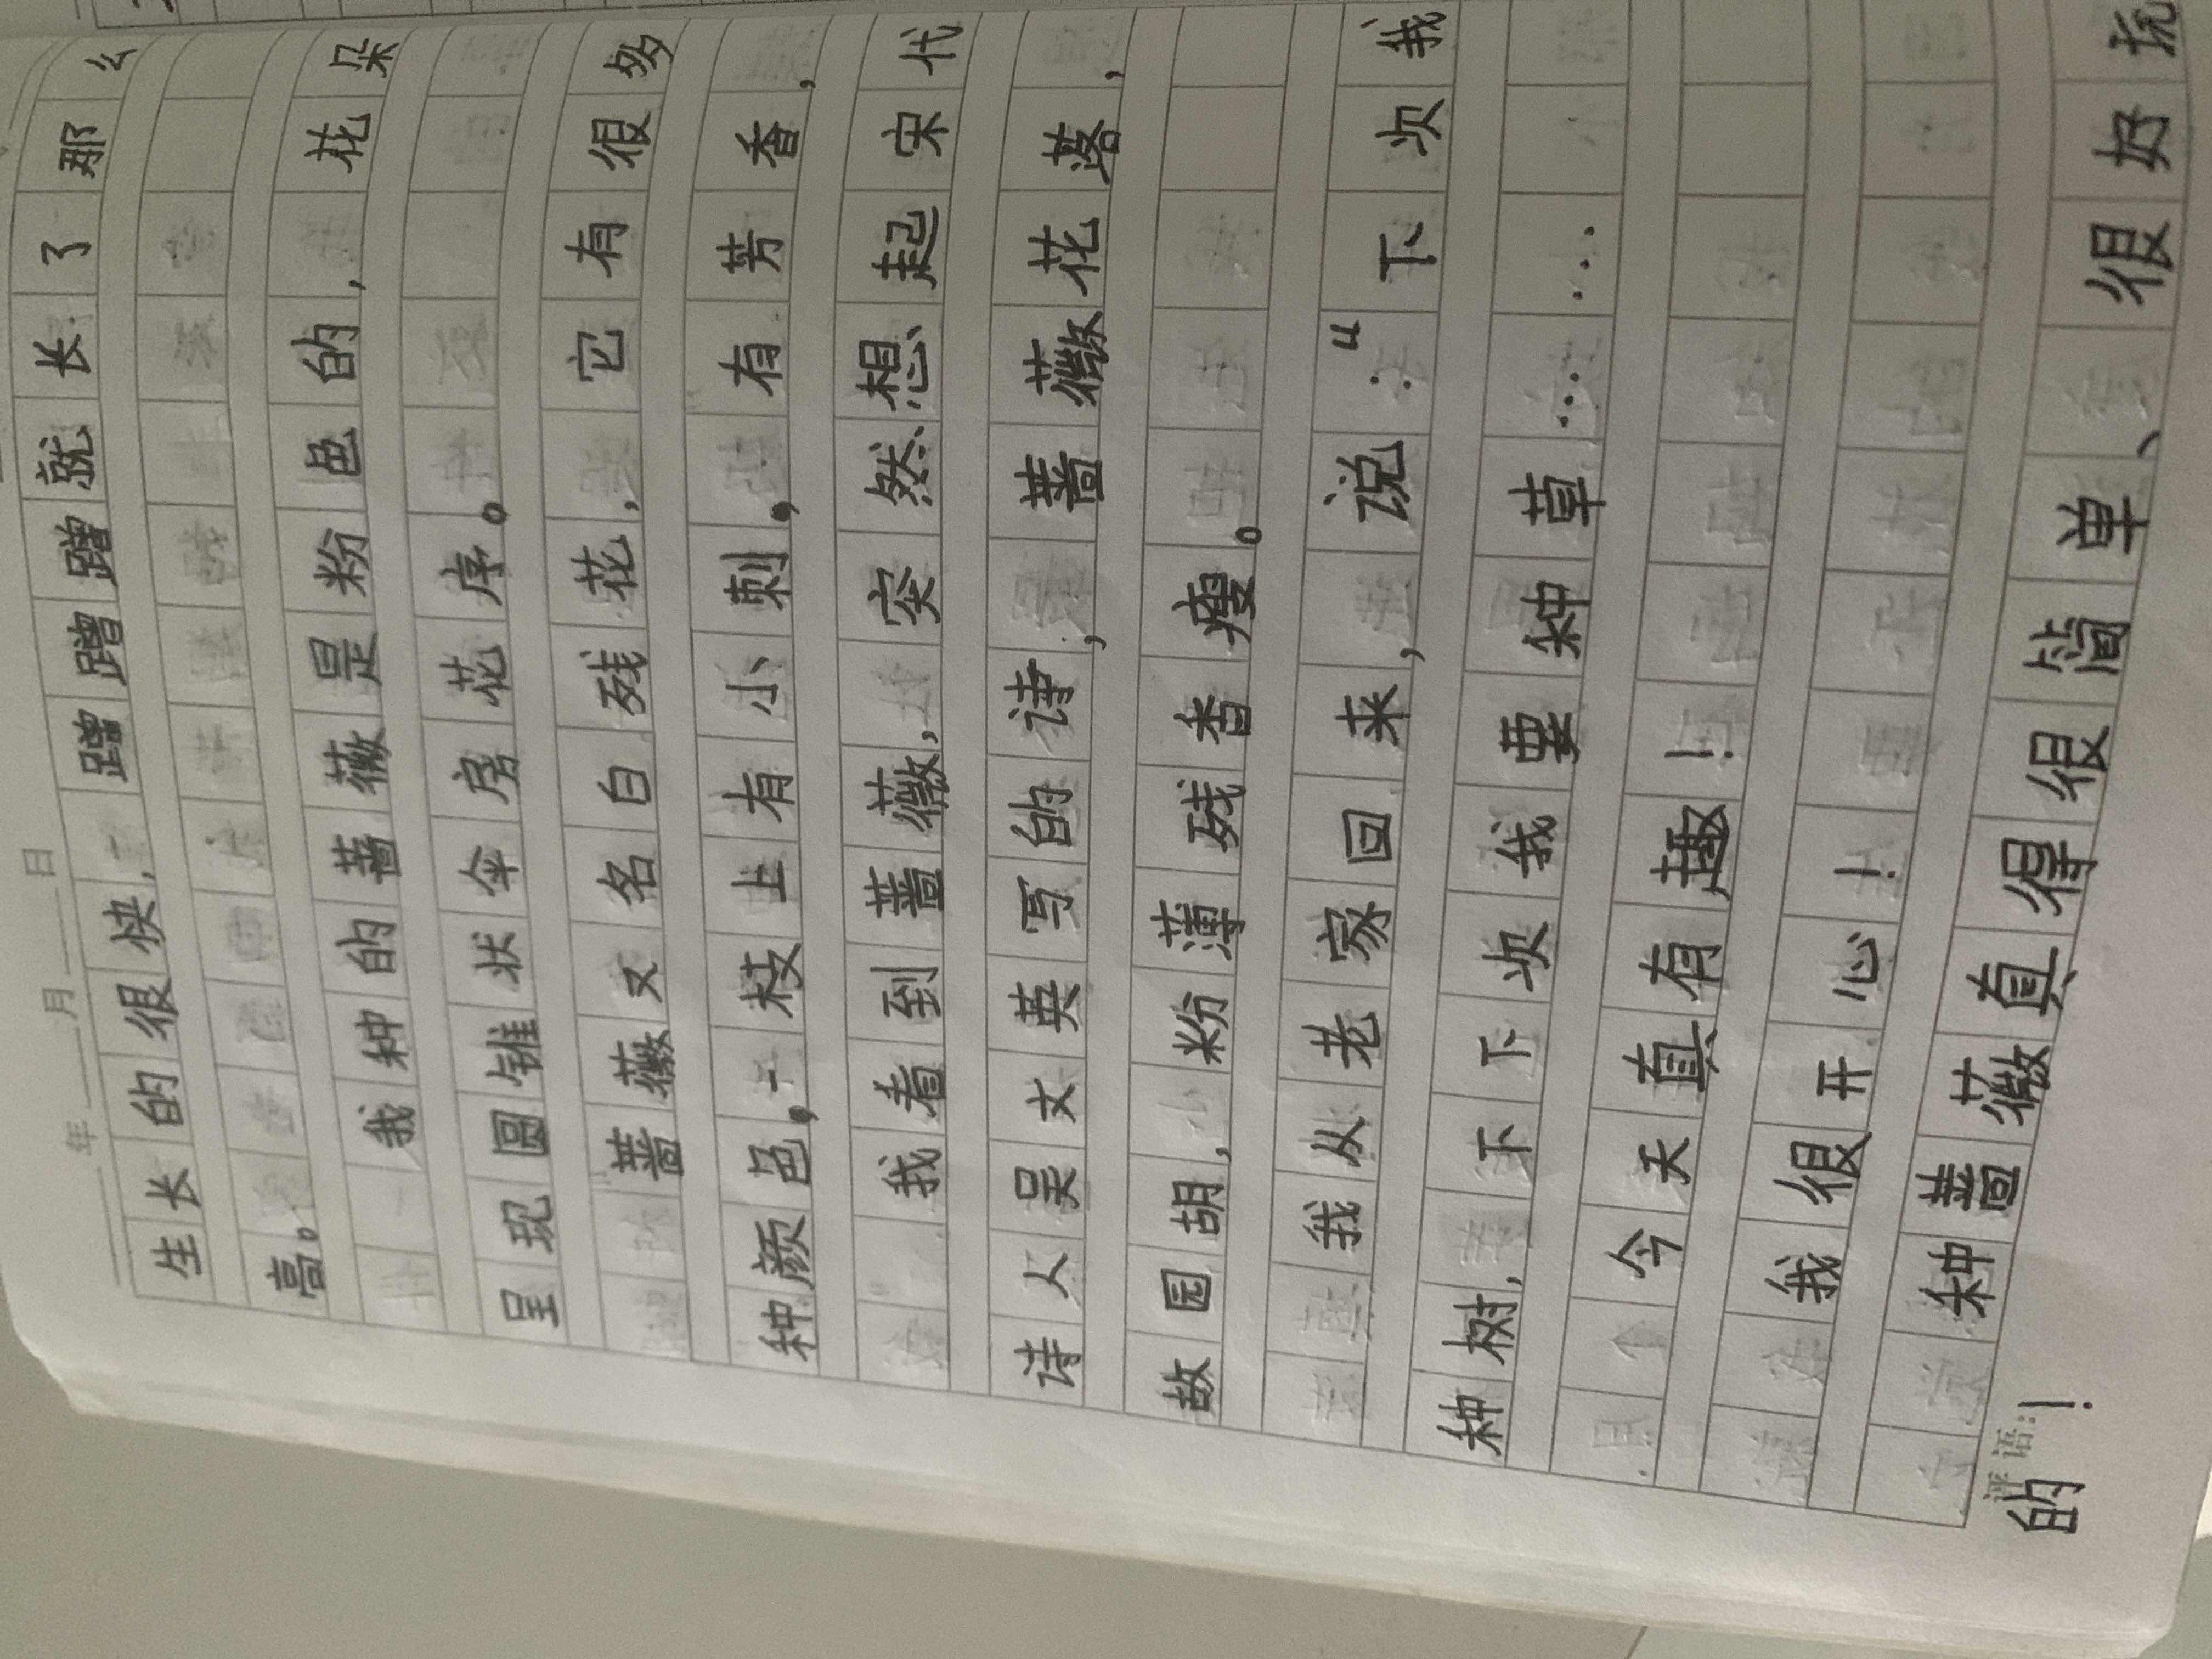 年 月 日
生长的很快,蹭蹭蹭就长了那么
高。
我种的蔷薇是粉色的,花朵
呈现圆锥状伞房花序。
蔷薇又名白残花,它有很多
种颜色,枝上有小刺,有芳香,
我看到蔷薇,突然想起宋代
诗人吴文英写的诗,蔷薇花落,
故园胡,粉薄残香瘦。
我从老家回来,说:“下次我
种树,下下次我要种草……
今天真有趣!
我很开心!
种蔷薇真得很简单、很好玩
的!
评语: